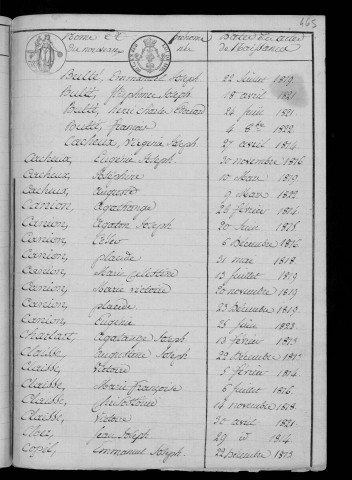 665
Noms &
du nouveau
prénoms
Dates de
de Naissance
Bulté, Emmanuel Joseph 22 juillet
Bulté, Stéphanie Joseph 18 avril 1821
Bulté, henri Charles Edouard 24 juin 1821
Bulté, francois 4 8bre 1822
Cacheux, Virginie Joseph 27 avril 1814
Cacheux, Eugénie Joseph 20 novembre 1816
Cacheux, Delphine 10 Mars 1819
Cacheux, Auguste 9 Mars 1822
Canion, Agathange 26 février 1814
Canion, Agathe Joseph 20 Juin 1815
Canion, 6 Décembre 1816
Canion, placide 31 mai 1818
Canion, Marie 13 juillet 1819
Canion, Marie victoire 20 novembre 1819
Canion, placide 23 Décembre 1819
Canion, Eugénie 25 juin 1822
Charlart, Agatange Joseph 13 février 1813
Claisse, Augustine Joseph 22 Décembre 1813
Claisse, Victoire 5 février 1814
Claisse, Marie françoise 6 Juillet 1816
Claisse, 14 novembre 1818
Claisse, Victoire 20 avril 1821
Cloez, Jean Joseph 29 id 1814
Copil, Emmanuel Joseph 22 Décembre 1813